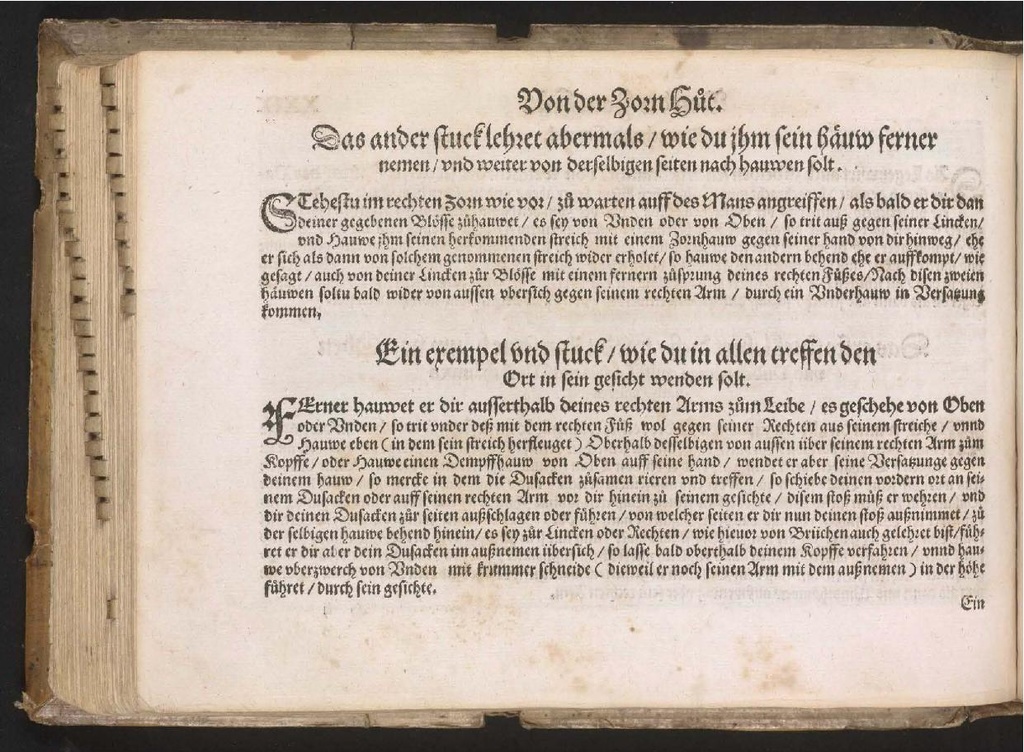 Von der Zorn Hůt.
Das ander stuck lehret abermals / wie du jhm sein häuw ferner
nemen / vnd weiter von derselbigen seiten nach hauwen solt.
STehestu im rechten Zorn wie vor / zů warten auff des Mans angreiffen / als bald er dir dan
deiner gegebenen Blösse zůhauwet / es sey von Vnden oder von Oben / so trit auß gegen seiner Lincken /
vnd Hauwe jhm seinen herkommenden streich mit einem Zornhauw gegen seiner hand von dir hinweg / ehe
er sich als dann von solchem genommenen streich wider erholet / so hauwe den andern behend ehe er auffkompt / wie
gesagt / auch von deiner Lincken zůr Blösse mit einem fernern zůsprung deines rechten Fůßes / Nach disen zweien
häuwen soltu bald wider von aussen vbersich gegen seinem rechten Arm / durch ein Vnderhauw in Versatzung
kommen.
Ein exempel vnd stuck / wie du in allen treffen den
Ort in sein gesicht wenden solt.
FErner hauwet er dir ausserthalb deines rechten Arms zům Leibe / es geschehe von Oben
oder Vnden / so trit vnder deß mit dem rechten Fůß wol gegen seiner Rechten aus seinem streiche / vnnd
Hauwe eben ( in dem sein streich herfleuget ) Oberhalb desselbigen von aussen über seinem rechten Arm zům
Kopffe / oder Hauwe einen Dempffhauw von Oben auff seine hand / wendet er aber seine Versatzunge gegen
deinem hauw / so mercke in dem die Dusacken zůsamen rieren vnd treffen / so schiebe deinen vordern ort an sei-
nem Dusacken oder auff seinen rechten Arm vor dir hinein zů seinem gesichte / disem stoß můß er wehren / vnd
dir deinen Dusacken zůr seiten außschlagen oder führen / von welcher seiten er dir nun deinen stoß außnimmet / zů
der selbigen hauwe behend hinein / es sey zůr Lincken oder Rechten / wie hieuor von Brüchen auch gelehret bist / füh-
ret er dir aber dein Dusacken im außnemen übersich / so lasse bald oberthalb deinem Kopffe verfahren / vnnd hau-
we vberzwerch von Vnden mit krummer schneide ( dieweil er noch seinen Arm mit dem außnemen ) in der höhe
führet / durch sein gesichte.
Ein